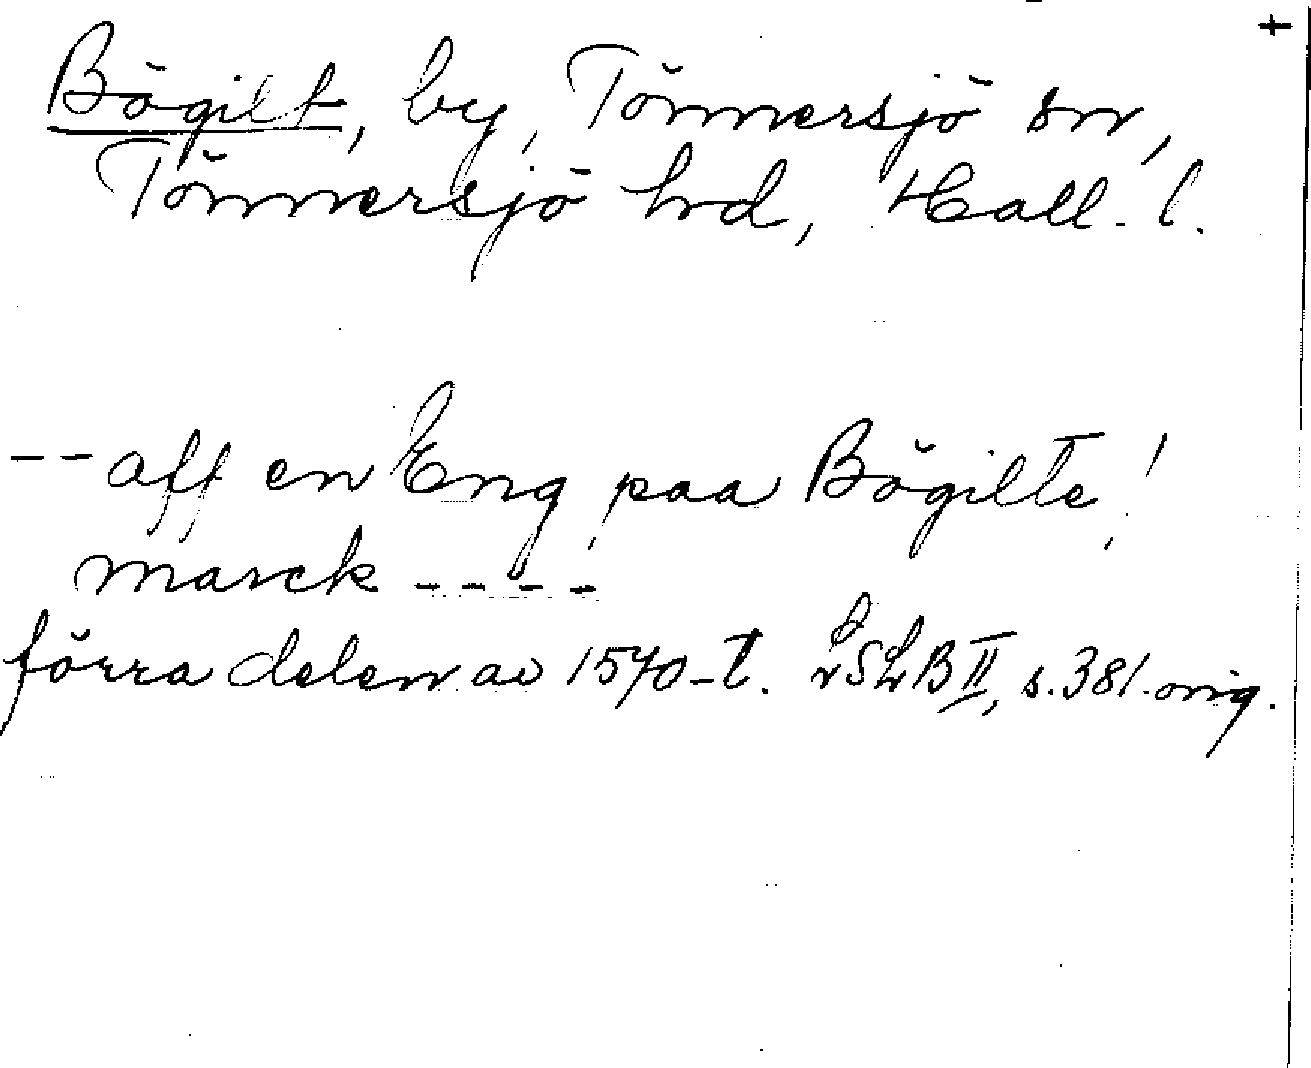 +
Bögilt, by, Tönnersjö sn,
Tönnersjö hrd, Hall. l.
-- aff en Eng paa Bögilte!
marck ----
förra delen av 1570-t. LSLB II, s. 381. orig.